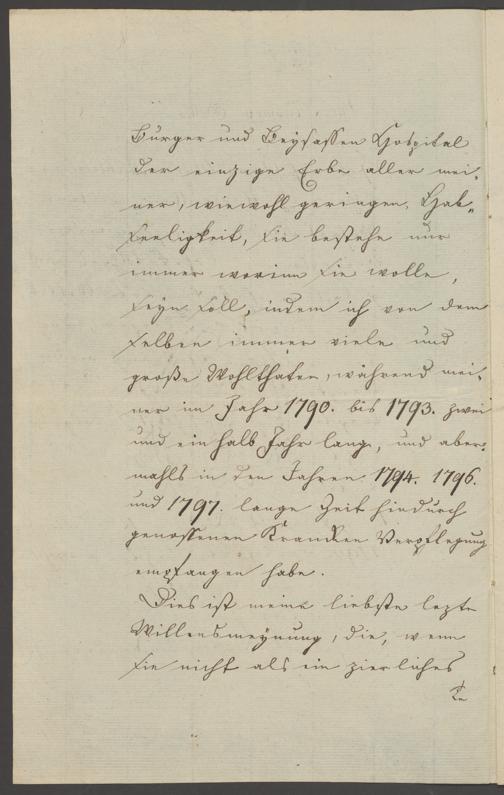 Bürger und Beysassen Hospital
der einzige Erbe aller mei-
ner, wiewohl geringen, Hab-
seeligkeit, sie bestehe nur
immer worinn sie wolle,
seyn soll, indem ich von dem
selben immer viele und
große Wohlthaten, während mei-
ner im Jahr 1790. bis 1793. zwei
und ein halb Jahr lang, und aber-
mahls in den Jahren 1794. 1796.
und 1797. lange Zeit hindurch
genossenen Krancken Verpflegung
empfangen habe.
Dies ist meine liebste lezte
Willensmeynung, die, wenn
sie nicht als ein zierliches
Te